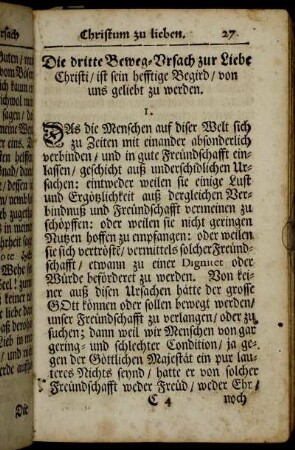 Christum zu lieben. 27
Die dritte Beweg-Ursach zur Liebe
Christi / ist sein hefftige Begird / von
uns geliebt zu werden.
I.
DAs die Menschen auf diser Welt sich
zu Zeiten mit einander absonderlich
verbinden / und in gute Freündschafft ein-
lassen / geschicht auß underschidlichen Ur-
sachen: eintweder weilen sie einige Lust
und Ergötzlichkeit auß dergleichen Ver-
bindnuß und Freündschafft vermeinen zu
schöpffen: oder weilen sie nicht geringen
Nutzen hoffen zu empfangen: oder weilen
sie sich vertröste / vermittels solcher Freünd-
schafft / etwann zu einer Dignitet oder
Würde befördert zu werden. Von kei-
ner auß disen Ursachen hätte der grosse
GOtt können oder sollen bewegt werden /
unser Freündschafft zu verlangen / oder zu
suchen; dann weil wir Menschen von gar
gering- und schlechter Condition / ja ge-
gen der Göttlichen Majestät ein pur lau-
teres Nichts seynd / hatte er von solcher
Freündschafft weder Freüd / weder Ehr /
C 4 noch